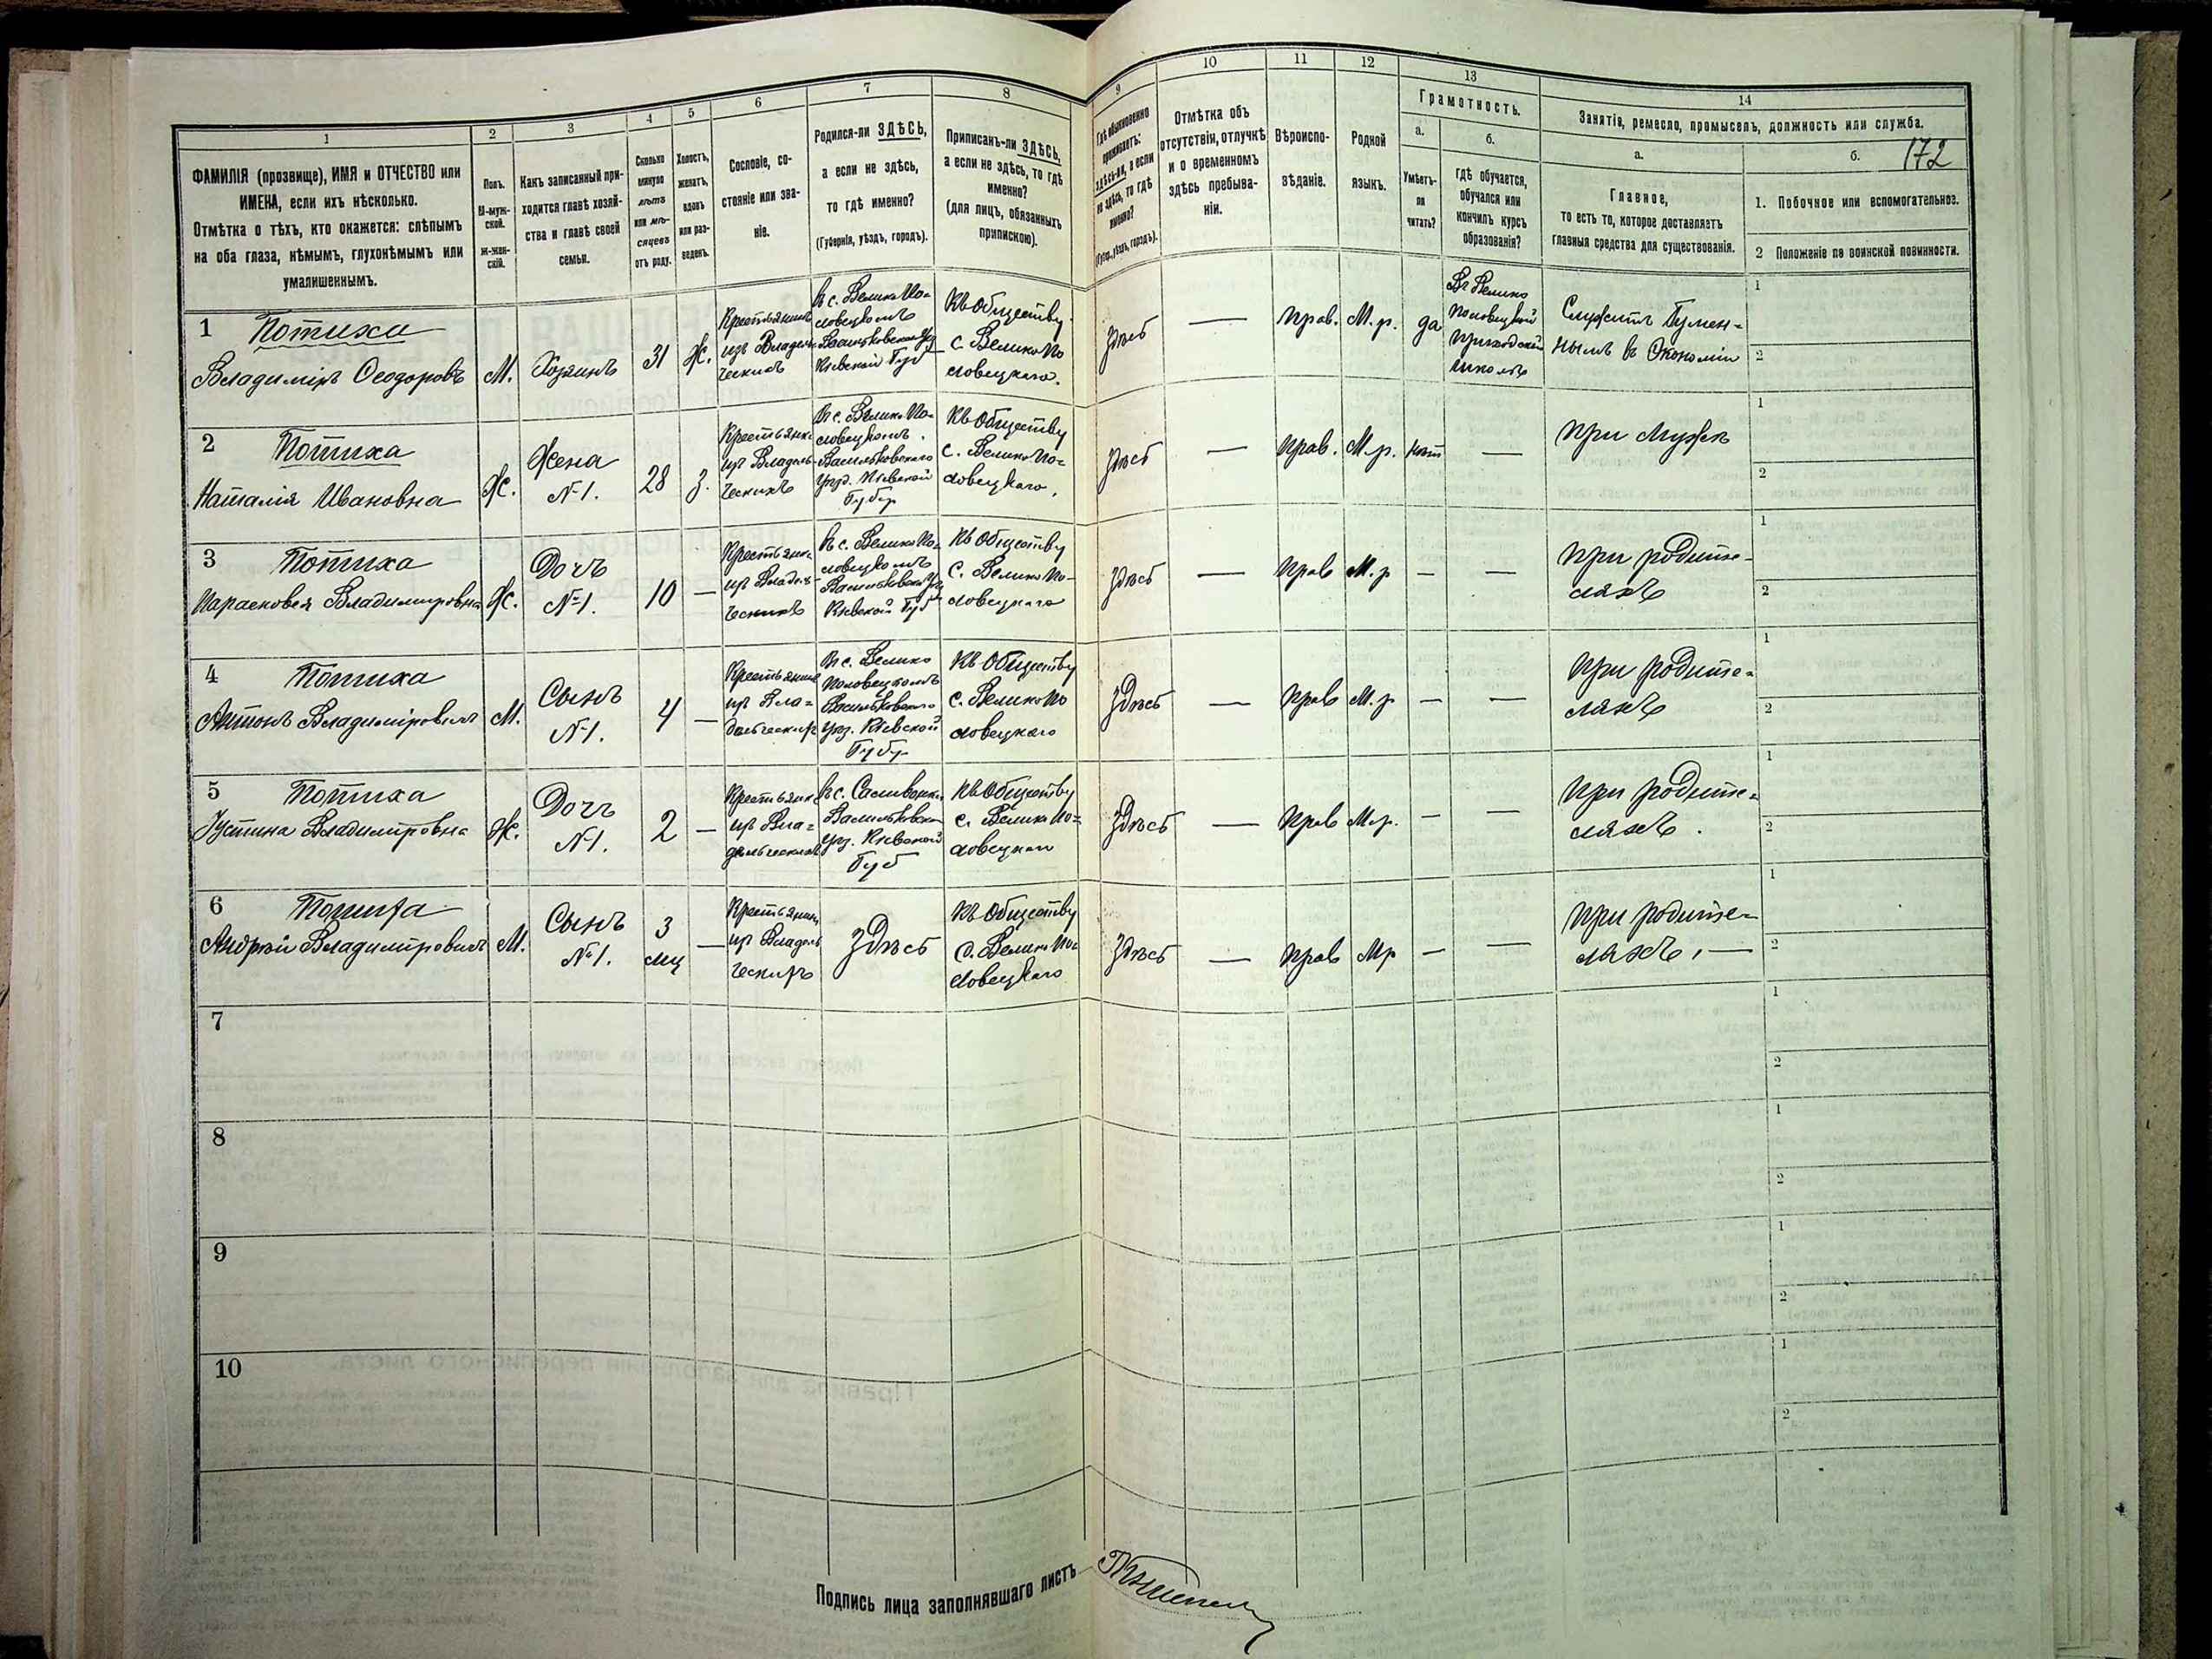 1
2
3
4
5
6
7
8
9
10
11
12
13
14
ФАМИЛІЯ (прозвище), ИМЯ и ОТЧЕСТВО или
ИМЕНА, если ихъ нѣсколько.
Отмѣтка о тѣхъ, кто окажется: слѣпымъ
на оба глаза, нѣмымъ, глухонѣмымъ или
умалишеннымъ.
Полъ.
М-муж-
ской.
Ж-жен-
скій.
Какъ записанный при-
ходится главѣ хозяй-
ства и главѣ своей
семьи.
Сколько
минуло
лѣтъ
или мѣ-
сяцевъ
отъ роду.
Холостъ,
женатъ,
вдовъ
или раз-
веденъ.
Сословіе, со-
стояніе или зва-
ніе.
Родился-ли ЗДѢСЬ,
а если не здѣсь,
то гдѣ именно?
(Губернія, уѣздъ, городъ).
Приписанъ-ли ЗДѢСЬ,
а если не здѣсь, то гдѣ
именно?
(для лицъ, обязанныхъ
припискою).
Гдѣ обыкновенно
проживаетъ:
здѣсь-ли, а если
не здѣсь, то гдѣ
именно?
(Губер., уѣздъ, городъ).
Отмѣтка объ
отсутствіи, отлучкѣ
и о временномъ
здѣсь пребыва-
ніи.
Вѣроиспо-
вѣданіе.
Родной
языкъ.
Грамотность.
а.
Умѣетъ-
ли
читать?
б.
гдѣ обучается,
обучался или
кончилъ курсъ
образованія?
Занятія, ремесло, промыселъ, должность или служба.
а.
Главное,
то есть то, которое доставляетъ
главныя средства для существованія.
б. 172
1. Побочное или вспомогательное.
2 Положеніе по воинской повинности.
1 Потиха
Владиміръ Ѳеодоровъ
М.
Хозяинъ
31
Ж.
Крестьянинъ
изъ Владель-
ческихъ
въ с. Велико По-
ловецкомъ
Васильковскаго уѣз
Кіевской Губ
Къ Обществу
с. Велико По
ловецкаго.
Здѣсь
—
прав.
М. р.
да
Въ Велико
Половецкой
приходской
школѣ
Служитъ Гумен-
нымъ въ Экономіи
1
2
2 Потиха
Наталія Ивановна
Ж.
Жена
№1.
28
З.
Крестьянк.
изъ Владель-
ческихъ
въ с. Велико По-
ловецкомъ.
Васильковскаго
уѣз. Кіевской
Губер
Къ Обществу
с. Велико По-
ловецкаго.
Здѣсь
—
прав.
М. р.
нѣтъ
—
при Мужѣ
1
2
3 Потиха
Парасковея Владимировна
Ж.
Дочь
№1.
10
—
Крестьянк.
изъ Владель-
ческихъ
въ с. Велико По-
ловецкомъ
Васильковск. уѣз
Кіевской Губ
Къ Обществу
с. Велико По-
ловецкаго
Здѣсь
—
прав
М. р
—
—
при родите-
ляхъ
1
2
4 Потиха
Антонъ Владиміровичъ
М.
Сынъ
№1.
4
—
Крестьянинъ
изъ Вла=
дельческихъ
въ с. Велико
Половецкомъ
Васильковскаго
уѣз. Кіевской
Губер
Къ Обществу
с. Велико По
ловецкаго
Здѣсь
—
прав
М. р
—
—
при родите=
ляхъ
1
2
5 Потиха
Іустина Владиміровна
Ж.
Дочь
№1.
2
—
Крестьянк
изъ Вла=
дельческихъ
въ с. Саливонки
Васильковскаго
уѣз. Кіевской
Губ
Къ Обществу
с. Велико По=
ловецкаго
Здѣсь
—
прав
М. р.
—
—
при родите=
ляхъ.
1
2
6 Потиха
Андрей Владиміровичъ
М.
Сынъ
№1.
3
мц
—
Крестьянинъ
изъ Владель
ческихъ
Здѣсь
Къ Обществу
с. Велико По=
ловецкаго
Здѣсь
—
прав
М р
—
—
при родите=
ляхъ, —
1
2
7
1
2
8
1
2
9
1
2
10
1
2
Подпись лица заполнявшаго листъ